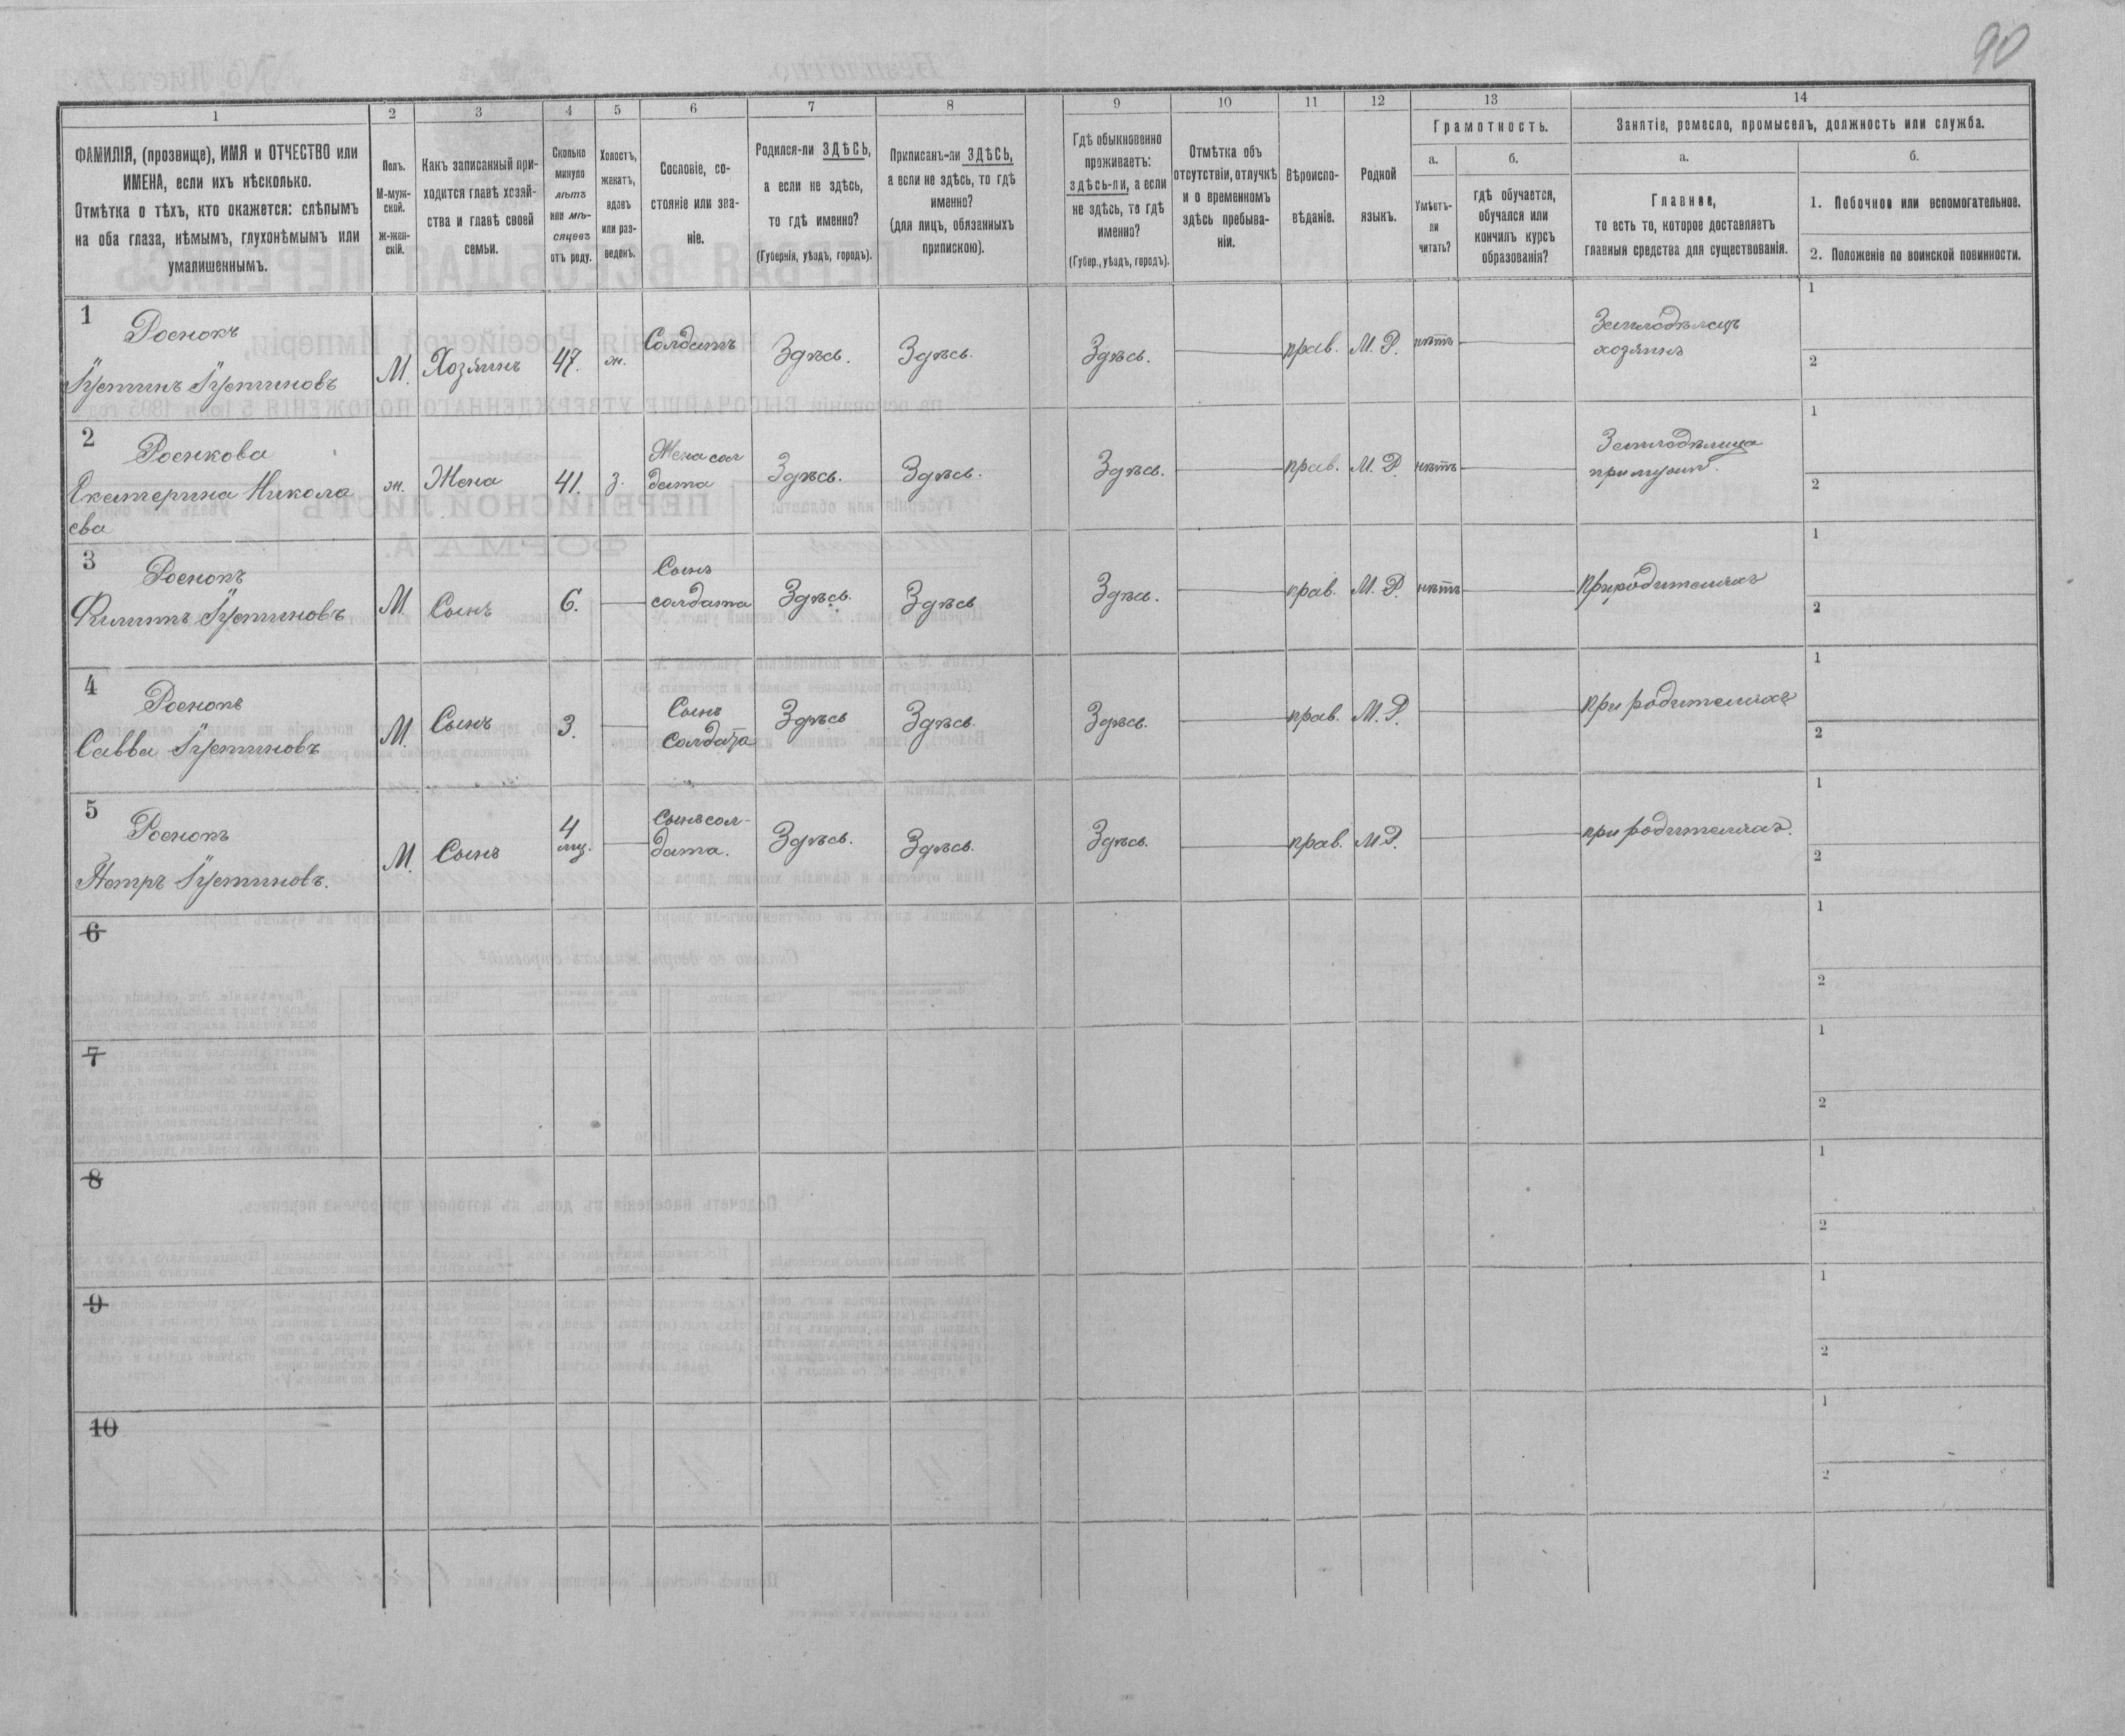 90
1
2
3
4
5
6
7
8
9
10
11
12
13
14
ФАМИЛІЯ, (прозвище), ИМЯ и ОТЧЕСТВО или
ИМЕНА, если ихъ нѣсколько.
Отмѣтка о тѣхъ, кто окажется: слѣпымъ
на оба глаза, нѣмымъ, глухонѣмымъ или
умалишеннымъ.
Полъ.
М-муж-
ской.
Ж-жен-
скій.
Какъ записанный при-
ходится главѣ хозяй-
ства и главѣ своей
семьи.
Сколько
минуло
лѣтъ
или мѣ-
сяцевъ
отъ роду.
Холостъ,
женатъ,
вдовъ
или раз-
веденъ.
Сословіе, со-
стояніе или зва-
ніе.
Родился-ли ЗДѢСЬ,
а если не здѣсь,
то гдѣ именно?
(Губернія, уѣздъ, городъ).
Приписанъ-ли ЗДѢСЬ,
а если не здѣсь, то гдѣ
именно?
(для лицъ, обязанныхъ
припискою).
Гдѣ обыкновенно
проживаетъ:
здѣсь-ли, а если
не здѣсь, то гдѣ
именно?
(Губер., уѣздъ, городъ).
Отмѣтка объ
отсутствіи, отлучкѣ
и о временномъ
здѣсь пребыва-
ніи.
Вѣроиспо-
вѣданіе.
Родной
языкъ.
Грамотность.
а.
Умѣетъ-
ли
читать?
б.
гдѣ обучается,
обучался или
кончилъ курсъ
образованія?
Занятіе, ремесло, промыселъ, должность или служба.
а.
Главное,
то есть то, которое доставляетъ
главныя средства для существованія.
б.
1. Побочное или вспомогательное.
2. Положеніе по воинской повинности.
1
Роенокъ
Устинъ Устиновъ
М.
Хозяинъ
47.
ж.
Солдатъ
Здѣсь.
Здѣсь.
Здѣсь.
прав.
М. Р.
нѣтъ
Земледѣлецъ
хозяинъ
1
2
2
Роенкова
Екатерина Никола
ева
ж.
Жена
41.
з.
Жена сол
дата
Здѣсь.
Здѣсь.
Здѣсь.
прав.
М. Р.
нѣтъ
Земледѣлица
при мужѣ.
1
2
3
Роенокъ
Филиппъ Устиновъ
М.
Сынъ
6.
Сынъ
солдата
Здѣсь.
Здѣсь
Здѣсь.
прав.
М. Р.
нѣтъ
при родителяхъ
1
2
4
Роенокъ
Савва Устиновъ
М.
Сынъ
3.
Сынъ
Солдата
Здѣсь
Здѣсь.
Здѣсь.
прав.
М. Р.
при родителяхъ
1
2
5
Роенокъ
Петръ Устиновъ.
М.
Сынъ
4
мц.
Сынъ сол-
дата.
Здѣсь.
Здѣсь.
Здѣсь.
прав.
М Р.
при родителяхъ.
1
2
6
1
2
7
1
2
8
1
2
9
1
2
10
1
2